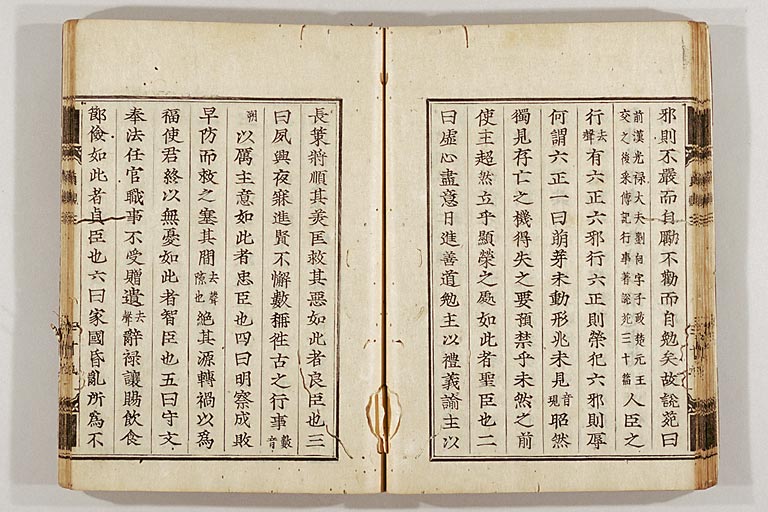 邪則不嚴而自勵不勸而自勉矣故說苑曰
前漢光禄大夫劉向字子政楚元王
交之後采傳記行事著說苑三十篇
人臣之
行去聲有六正六邪行六正則榮犯六邪則辱
何謂六正一曰萌芽未動形兆未見音現昭然
獨見存亡之機得失之要預禁乎未然之前
使主超然立乎顯榮之處如此者聖臣也二
曰虛心盡意日進善道勉主以禮義諭主以
長策將順其美匡救其惡如此者良臣也三
曰夙興夜寐進賢不懈數稱徃古之行事數音
朔以厲主意如此者忠臣也四曰明察成敗
早防而救之塞其間去聲隙也絶其源轉禍以爲
福使君終以無憂如此者智臣也五曰守文
奉法任官職事不受贈遺去聲辭禄讓賜飲食
節儉如此者貞臣也六曰家國昏亂所爲不